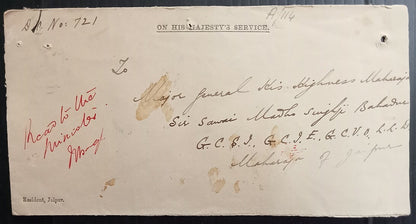 D.O. No: 721
A/114
ON HIS MAJESTY'S SERVICE.
To
Major General His Highness Maharaja
Sir Sawai Madho Singhji Bahadur
G.C.S.I., G.C.I.E., G.C.V.O., L.L.D.
Maharaja of Jaipur
to the
Minister
Resident, Jaipur.